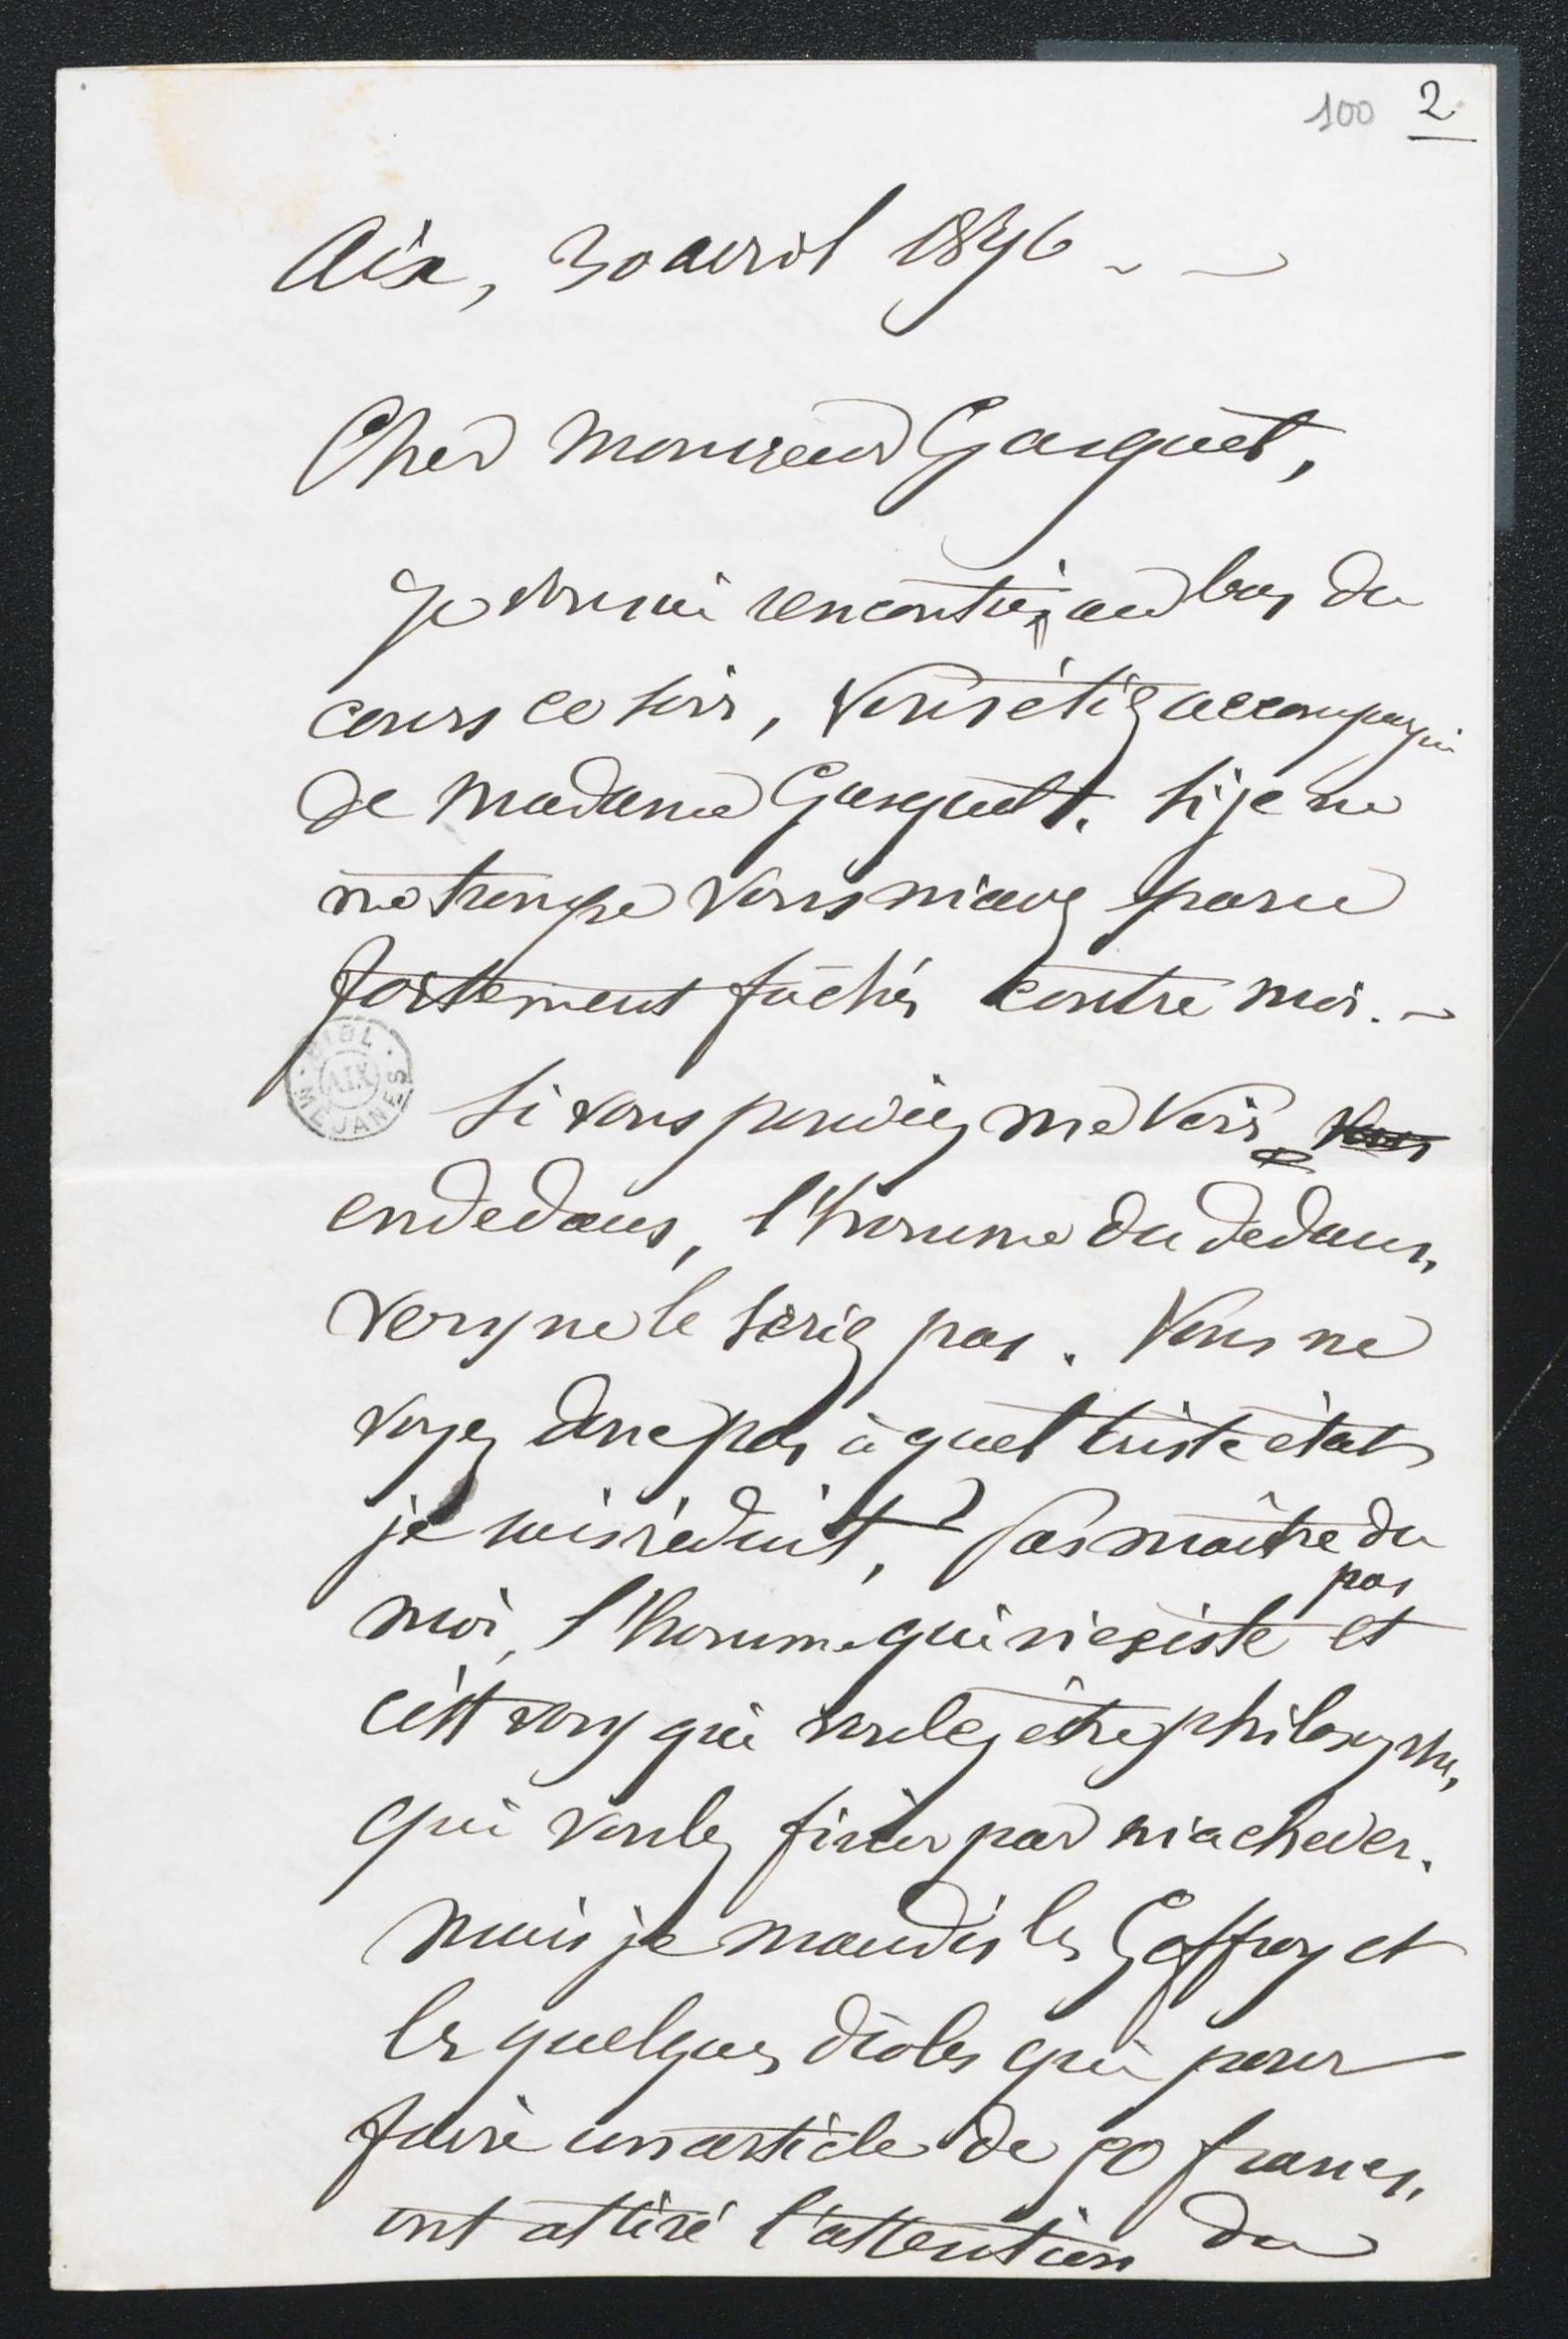 100 2
Aix, 30 avril 1896
Cher monsieur Gasquet,
Je vous ai rencontré, au bas du
cours ce soir, Vous étiez accompagné
de madame Gasquet. Si je ne
me trompe vous m'avez paru
fortement fâchés contre moi. ~
BIBL. MEJANES AIX
Si vous pouviez me voir
en dedans, l'homme du dedans,
vous ne le seriez pas. Vous ne
voyez donc pas à quel triste état
je suis réduit, Pas maître du
moi, l'homme qui n'existe pas et
c'est vous qui voulez être philosophe,
qui voulez finir par m'achever.
mais je maudis les Geffroy et
les quelques drôles qui pour
faire un article de 50 francs,
ont attiré l'attention du